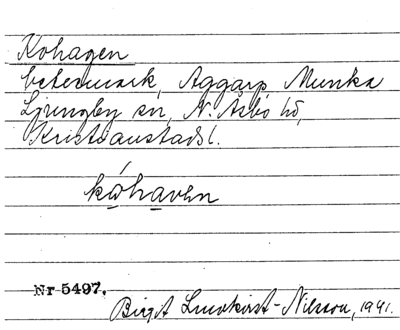 Kohagen
betesmark, Aggarp Munka
Ljungby sn, N. Åsbo hd,
Kristianstads l.
kóhaven
Nr 5497.
Birgit Lundkvist-Nilsson, 1941.